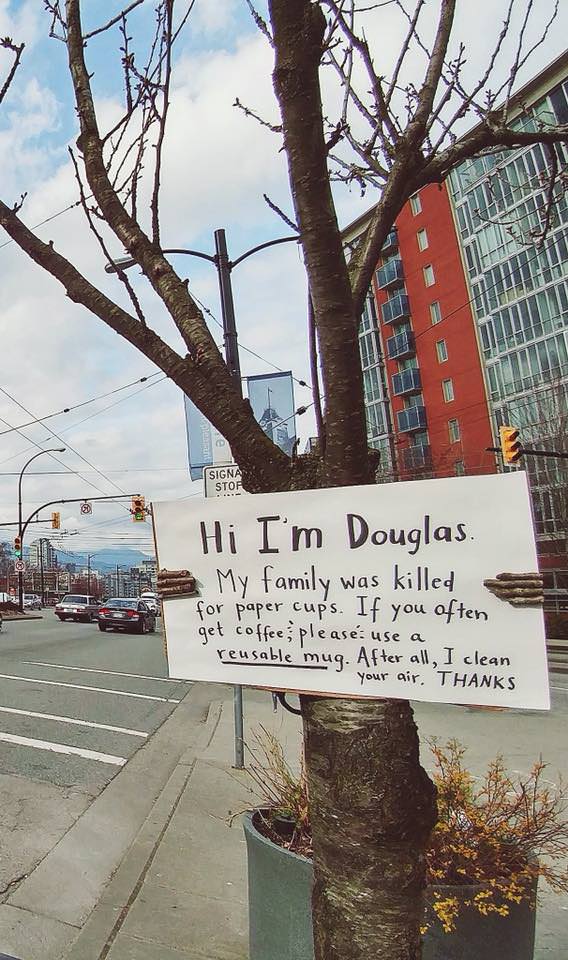 SIGNA
STOP
Hi I'm Douglas.
My family was killed
for paper cups. If you often
get coffee, please use a
reusable mug. After all, I clean
your air. THANKS